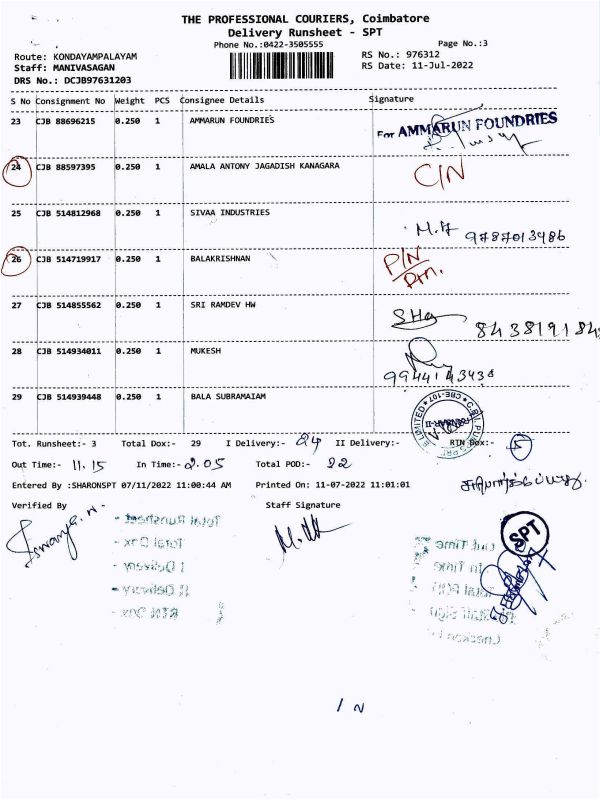 THE PROFESSIONAL COURIERS, Coimbatore
Delivery Runsheet - SPT
Phone No.:0422-3505555
Page No.:3
Route: KONDAYAMPALAYAM
RS No.: 976312
Staff: MANIVASAGAN
RS Date: 11-Jul-2022
DRS No.: DCJB97631203
S No Consignment No Weight PCS Consignee Details Signature
23 CJB 88696215 0.250 1 AMMARUN FOUNDRIES
For AMMARUN FOUNDRIES
24 CJB 88597395 0.250 1 AMALA ANTONY JAGADISH KANAGARA C/N
25 CJB 514812968 0.250 1 SIVAA INDUSTRIES
9787013486
26 CJB 514719917 0.250 1 BALAKRISHNAN P/N
27 CJB 514855562 0.250 1 SRI RAMDEV HW
28 CJB 514934011 0.250 1 MUKESH
29 CJB 514939448 0.250 1 BALA SUBRAMAIAM
Tot. Runsheet:- 3 Total Dox:- 29 I Delivery:- 24 II Delivery:- RTN Dox:- 5
Out Time:- 11.15 In Time:- 2.05 Total POD:- 22
Entered By :SHARONSPT 07/11/2022 11:00:44 AM Printed On: 11-07-2022 11:01:01
Verified By Staff Signature
Total Runsheet -
Total Dox -
I Delivery -
II Delivery -
RTN Dox -
SPT
Out Time
In Time
Total POD
Staff Sign